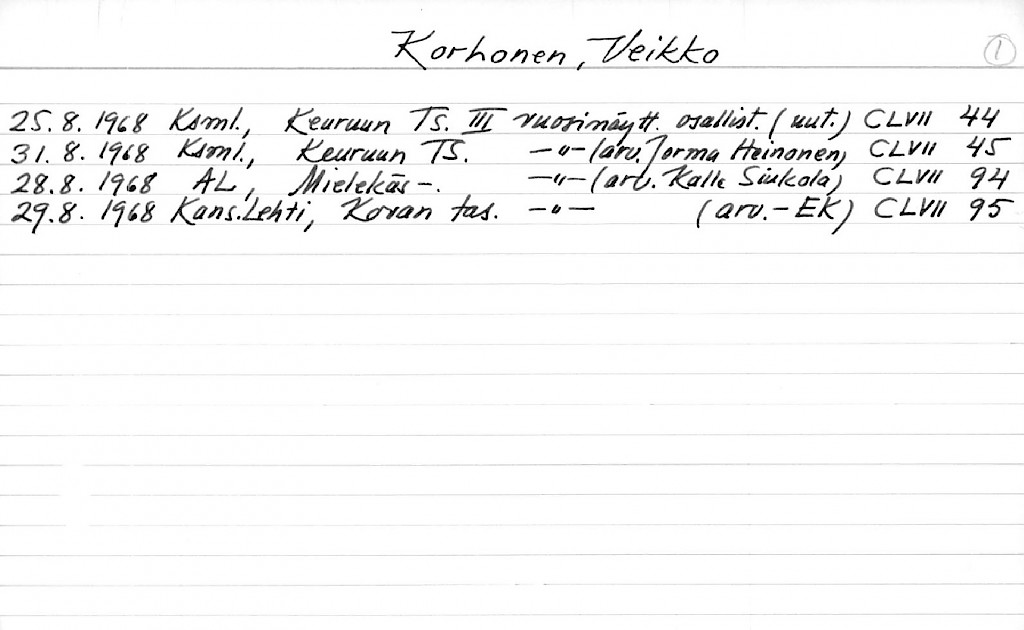 Korhonen, Veikko 1
25.8. 1968 Ksml., Keuruun TS. III vuosinäytt. osallist. (uut.) CLVII 44
31. 8. 1968 Ksml., Keuruun TS. -"- (arv. Jorma Heinonen) CLVII 45
28.8. 1968 AL, Mielekäs -. -"- (arv. Kalle Siukola) CLVII 94
29.8. 1968 Kans.Lehti, Kovan tas. -"- (arv. - EK) CLVII 95